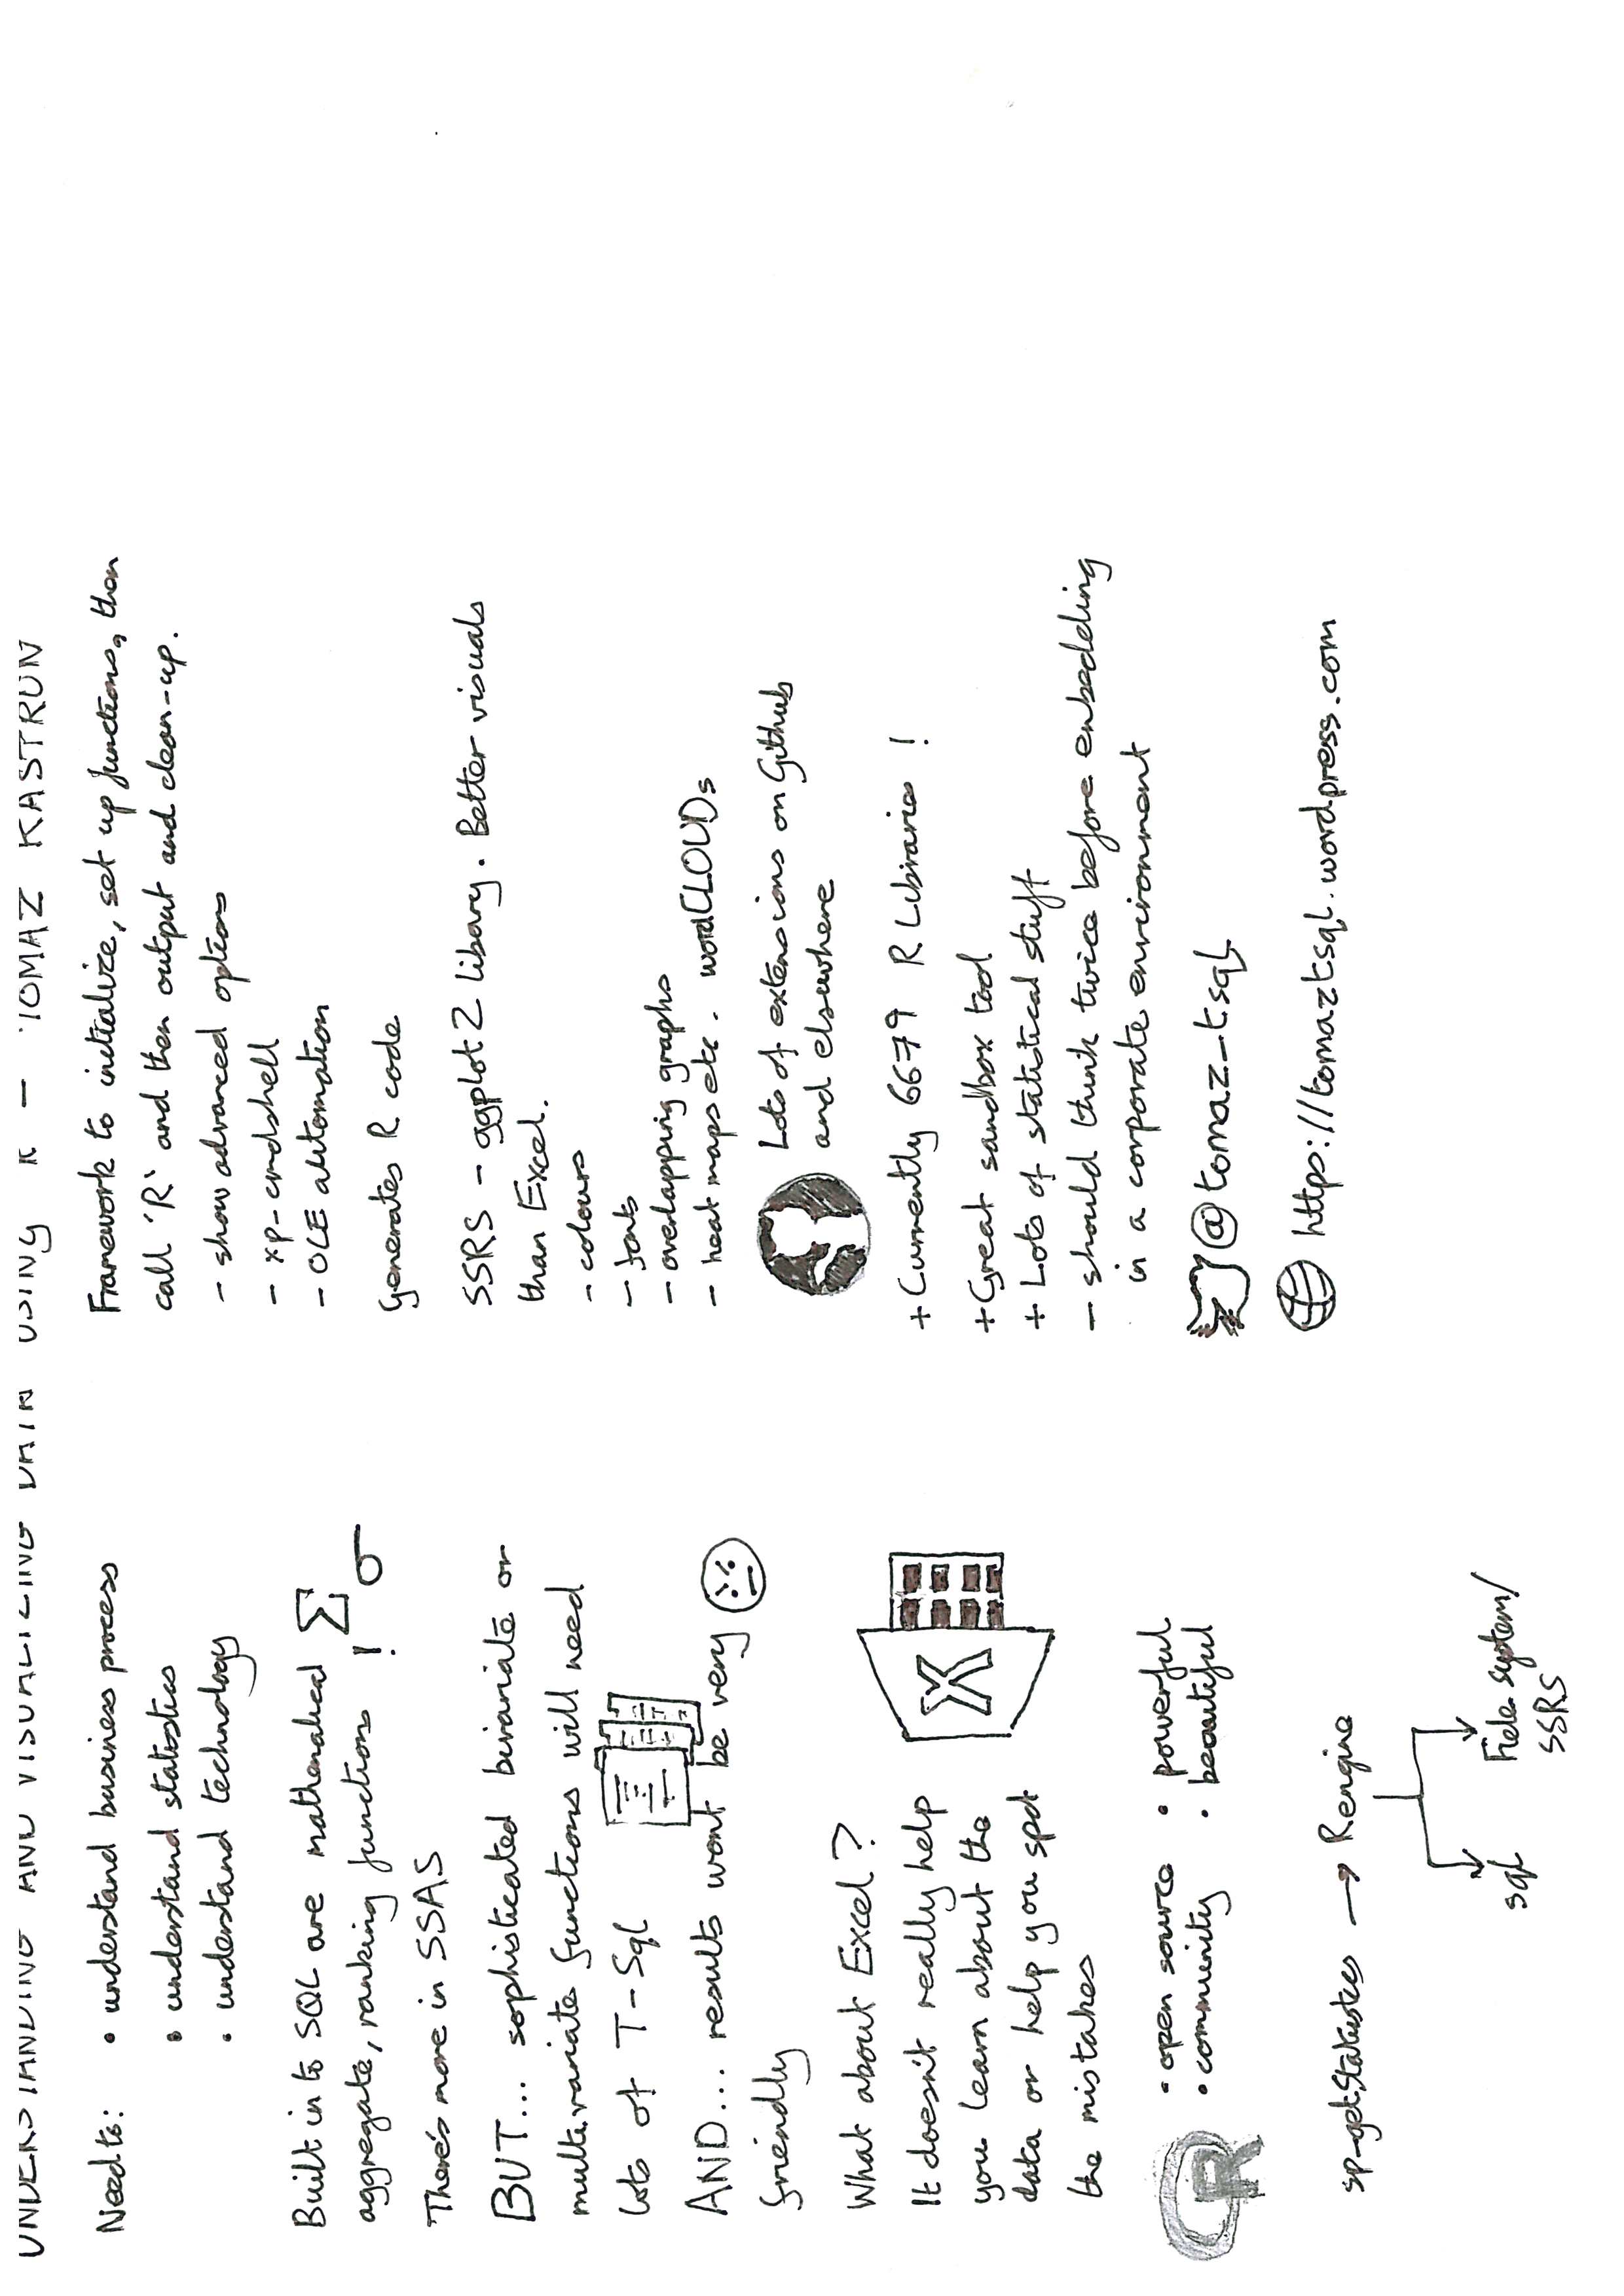 UNDERSTANDING AND VISUALIZING DATA USING R - TOMAZ KASTRUN
Need to: • understand business process
• understand statistics
• understand technology
Built in to SQL are mathematical
aggregate, ranking functions ! Σ σ
There's more in SSAS
BUT... sophisticated bivariate or
multivariate functions will need
lots of T-Sql
AND... results wont be very
friendly
What about Excel?
It doesn't really help
you learn about the
data or help you spot
the mistakes
X
R
• open source • powerful
• community • beautiful
sp-getStatistics → R engine
sql
File system/
SSRS
Framework to initialize, set up functions, then
call 'R' and then output and clean-up.
- show advanced options
- xp-cmdshell
- OLE automation
Generates R code
SSRS - ggplot2 library. Better visuals
than Excel.
- colours
- fonts
- overlapping graphs
- heat maps etc. wordCLOUDs
Lots of extensions on Github
and elsewhere
+ Currently 6679 R Libraries !
+ Great sandbox tool
+ Lots of statistical stuff
- should think twice before embedding
in a corporate environment
@tomaz_tsql
https://tomaztsql.wordpress.com